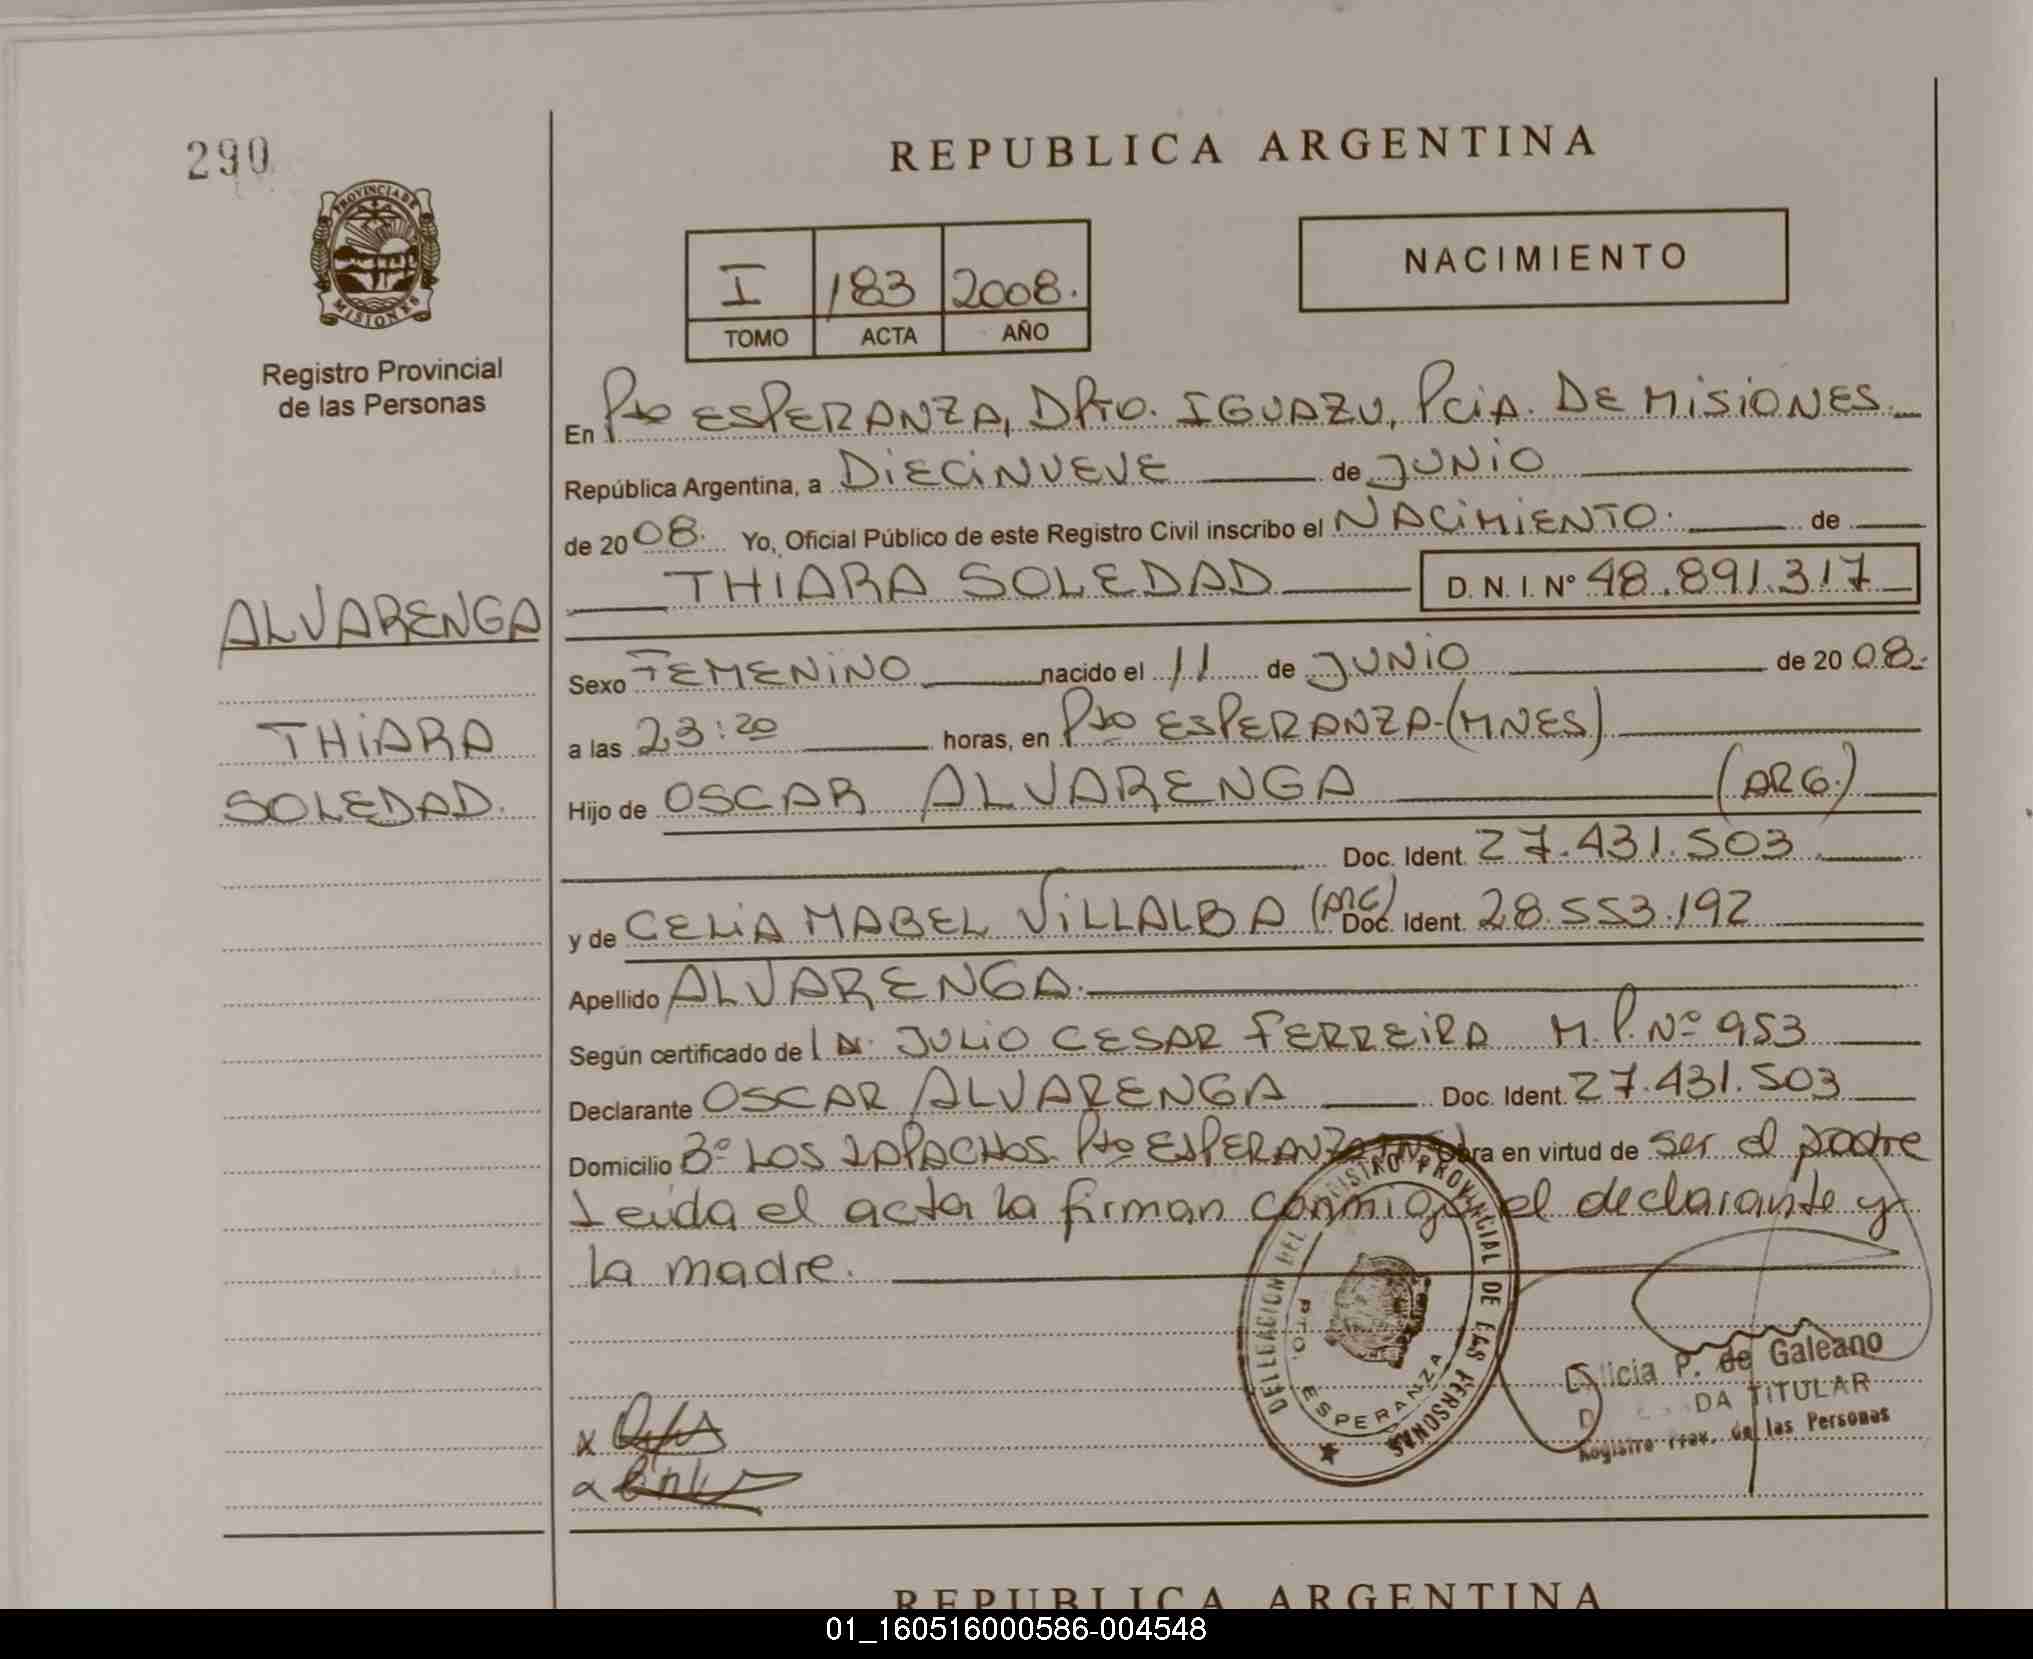 290
REPUBLICA ARGENTINA
PROVINCIA DE
MISIONES
Registro Provincial
de las Personas
I 183 2008.
TOMO ACTA AÑO
NACIMIENTO
En Pto ESPERANZA, DPTO. IGUAZU, PCIA. DE MISIONES
República Argentina, a DIECINUEVE de JUNIO
de 2008. Yo, Oficial Público de este Registro Civil inscribo el NACIMIENTO. de
THIARA SOLEDAD D. N. I. Nº 48.891.317
ALVARENGA
THIARA
SOLEDAD.
Sexo FEMENINO nacido el 11 de JUNIO de 2008.
a las 23:20 horas, en Pto ESPERANZA-(MNES)
Hijo de OSCAR ALVARENGA (ARG.)
Doc. Ident. 27.431.503
y de CELIA MABEL VILLALBA (ARG) Doc. Ident. 28.553.192
Apellido ALVARENGA.
Según certificado de JULIO CESAR FERREIRA M.P. Nº 953
Declarante OSCAR ALVARENGA Doc. Ident. 27.431.503
Domicilio Bº LOS LAPACHOS. Pto ESPERANZA Obra en virtud de ser el padre
Leida el acta la firman conmigo el declarante y
la madre.
DELEGACION DEL REGISTRO PROVINCIAL DE LAS PERSONAS
PTO. ESPERANZA
Alicia P. de Galeano
DA TITULAR
Registro Prov. de las Personas
REPUBLICA ARGENTINA
01_160516000586-004548